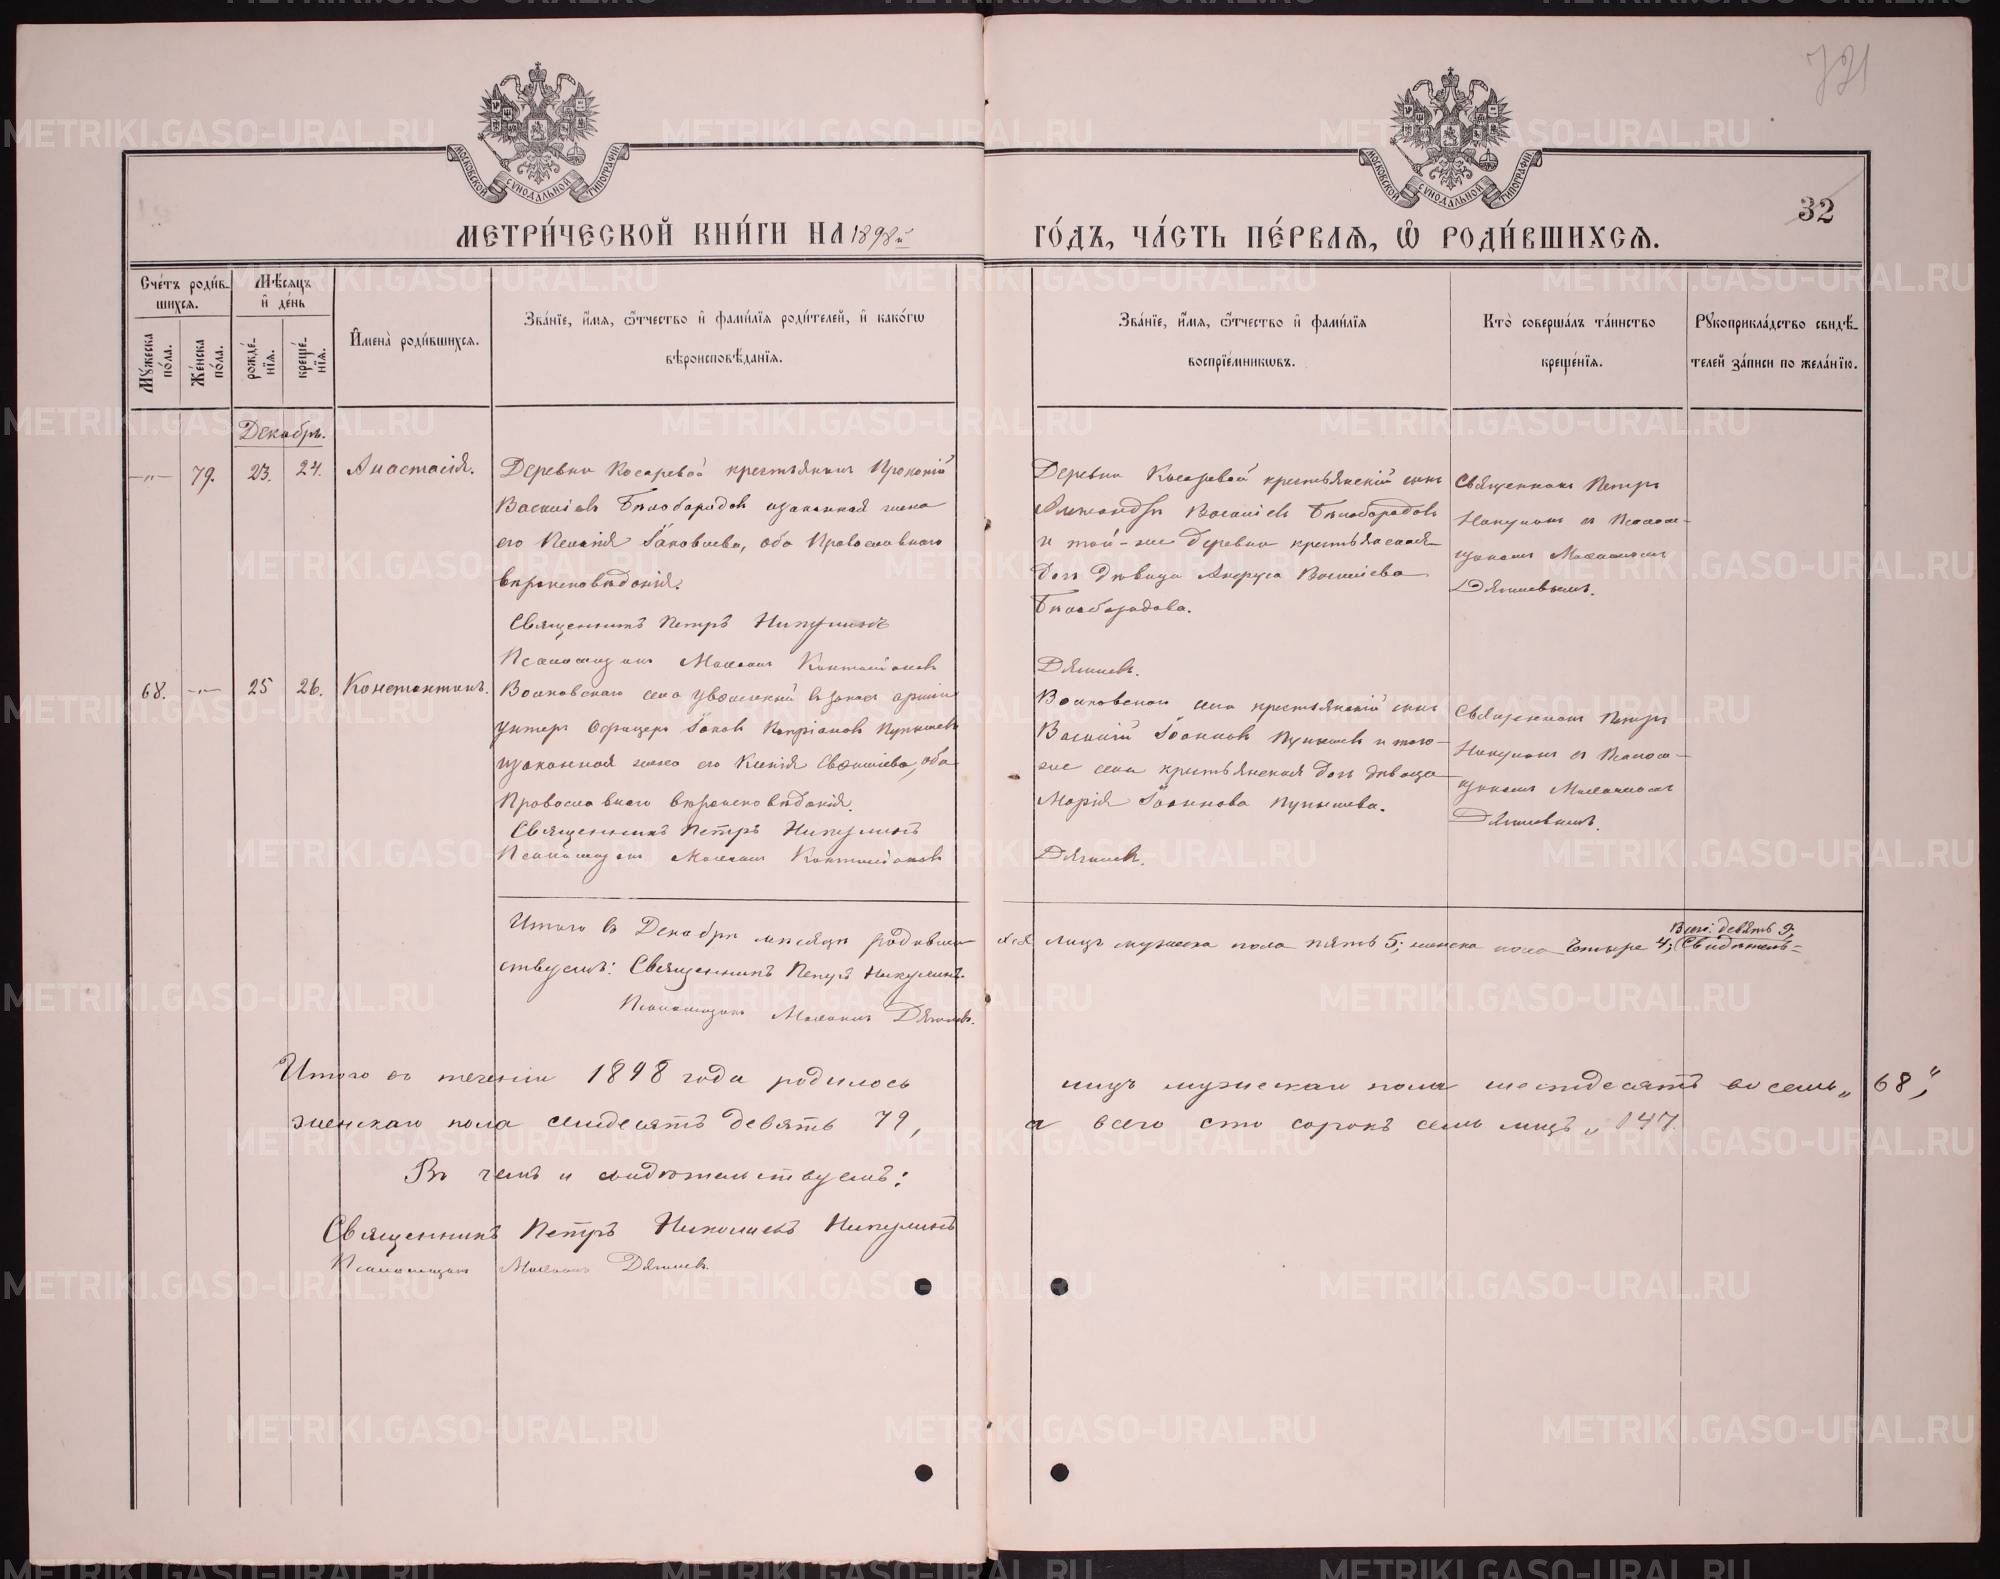 721
32
МОСКОВСКОЙ СУНОДАЛЬНОЙ ТИПОГРАФІИ
МОСКОВСКОЙ СУНОДАЛЬНОЙ ТИПОГРАФІИ
МЕТРИ́ЧЕСКОЙ КНИ́ГИ НА 1898й ГО́ДЪ, ЧА́СТЬ ПЕ́РВАѦ, Ѡ҆ РОДИ́ВШИХСѦ.
Сче́тъ роди́в-
шихсѧ.
Мѣ́сѧцъ
и҆ де́нь
Му́жеска
по́ла.
Же́нска
по́ла.
рожде́-
нїѧ.
креще́-
нїѧ.
И҆мена̀ роди́вшихсѧ.
Зва́нїе, и҆́мѧ, ѻ҆́тчество и҆ фами́лїѧ роди́телей, и҆ како́гѡ
вѣроисповѣ́данїѧ.
Зва́нїе, и҆́мѧ, ѻ҆́тчество и҆ фами́лїѧ
воспрїе́мникѡвъ.
Кто̀ соверша́лъ та́инство
креще́нїѧ.
Рукоприкла́дство свидѣ́-
телей за́писи по жела́нїю.
Декабрь.
—„— 79. 23. 24. Анастасія.
Деревни Косаревой крестьянинъ Прокопій
Васильевъ Бѣлобородовъ и законная жена
его Пелагія Іаковлева, оба Православнаго
вѣроисповѣданія.
Священникъ Петръ Никулинъ
Псаломщикъ
Деревни Косаревой крестьянскій сынъ
Александръ Васильевъ Бѣлобородовъ
и той-же деревни крестьянская
дочь дѣвица Васильева
Бѣлобородова.
Дягилевъ.
Священникъ Петръ
Никулинъ съ Псалом-
щикомъ
Дягилевымъ.
68. —„— 25 26. Константинъ.
Волковскаго села уволенный въ запасъ арміи
унтеръ офицеръ Іаковъ Кипріановъ Пупышевъ
и законная жена его Ксенія Савельева, оба
Православнаго вѣроисповѣданія.
Священникъ Петръ Никулинъ
Псаломщикъ
Волковскаго села крестьянскій сынъ
Василій Іоанновъ Пупышевъ и того-
же села крестьянская дочь дѣвица
Марія Іоаннова Пупышева.
Дягилевъ.
Священникъ Петръ
Никулинъ съ Псалом-
щикомъ
Дягилевымъ.
Итого въ Декабрѣ мѣсяцѣ родивши хся лицъ мужеска пола пять 5; женска пола четыре 4; Всего девять 9; Свидѣтель-
ствуемъ: Священникъ Петръ Никулинъ.
Псаломщикъ Дягилевъ.
Итого въ теченіи 1898 года родилось лицъ мужескаго пола шестдесятъ восемь „68„
женскаго пола семдесятъ девять 79, а всего сто сорокъ семь лицъ „ 147.
Въ чемъ и свидѣтельствуемъ:
Священникъ Петръ Николаевъ Никулинъ
Псаломщикъ Дягилевъ.
METRIKI.GASO-URAL.RU